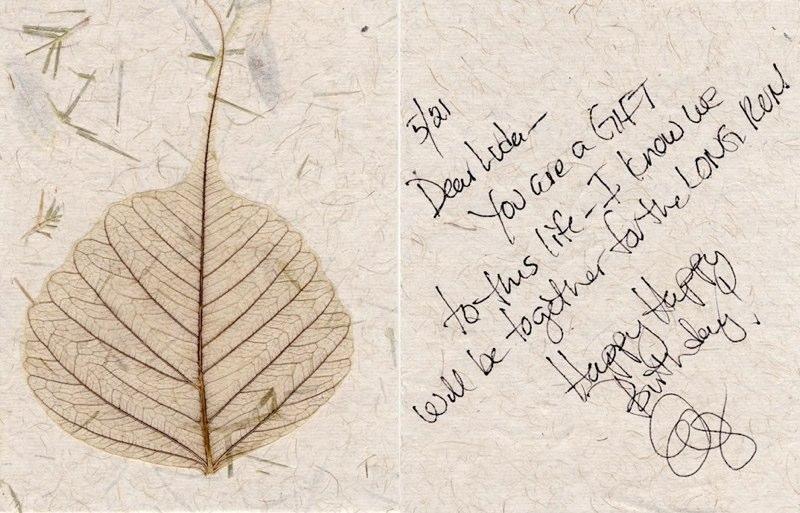 5/21
Dear Lida—
You are a GIFT
to this life—I know we
will be together for the LONG RUN!
Happy Happy
Birthday!